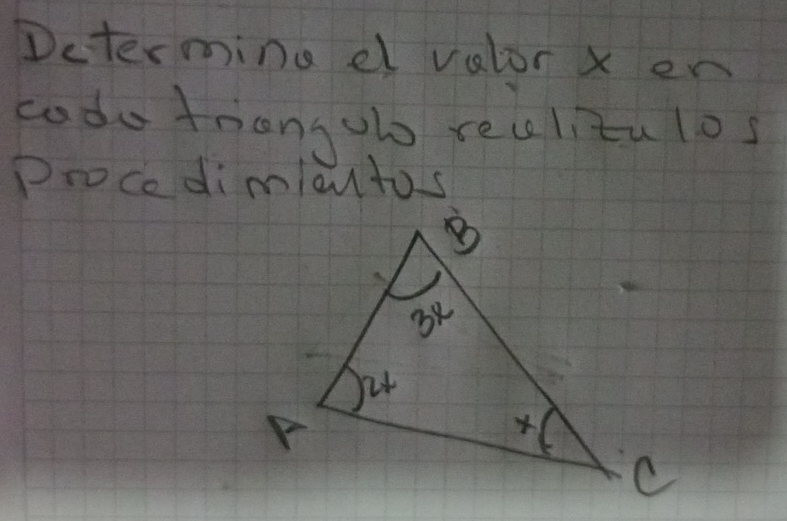 Determina el valor x en
cada triangulo realiza los
Procedimientos
B
3x
2x
A
x
C